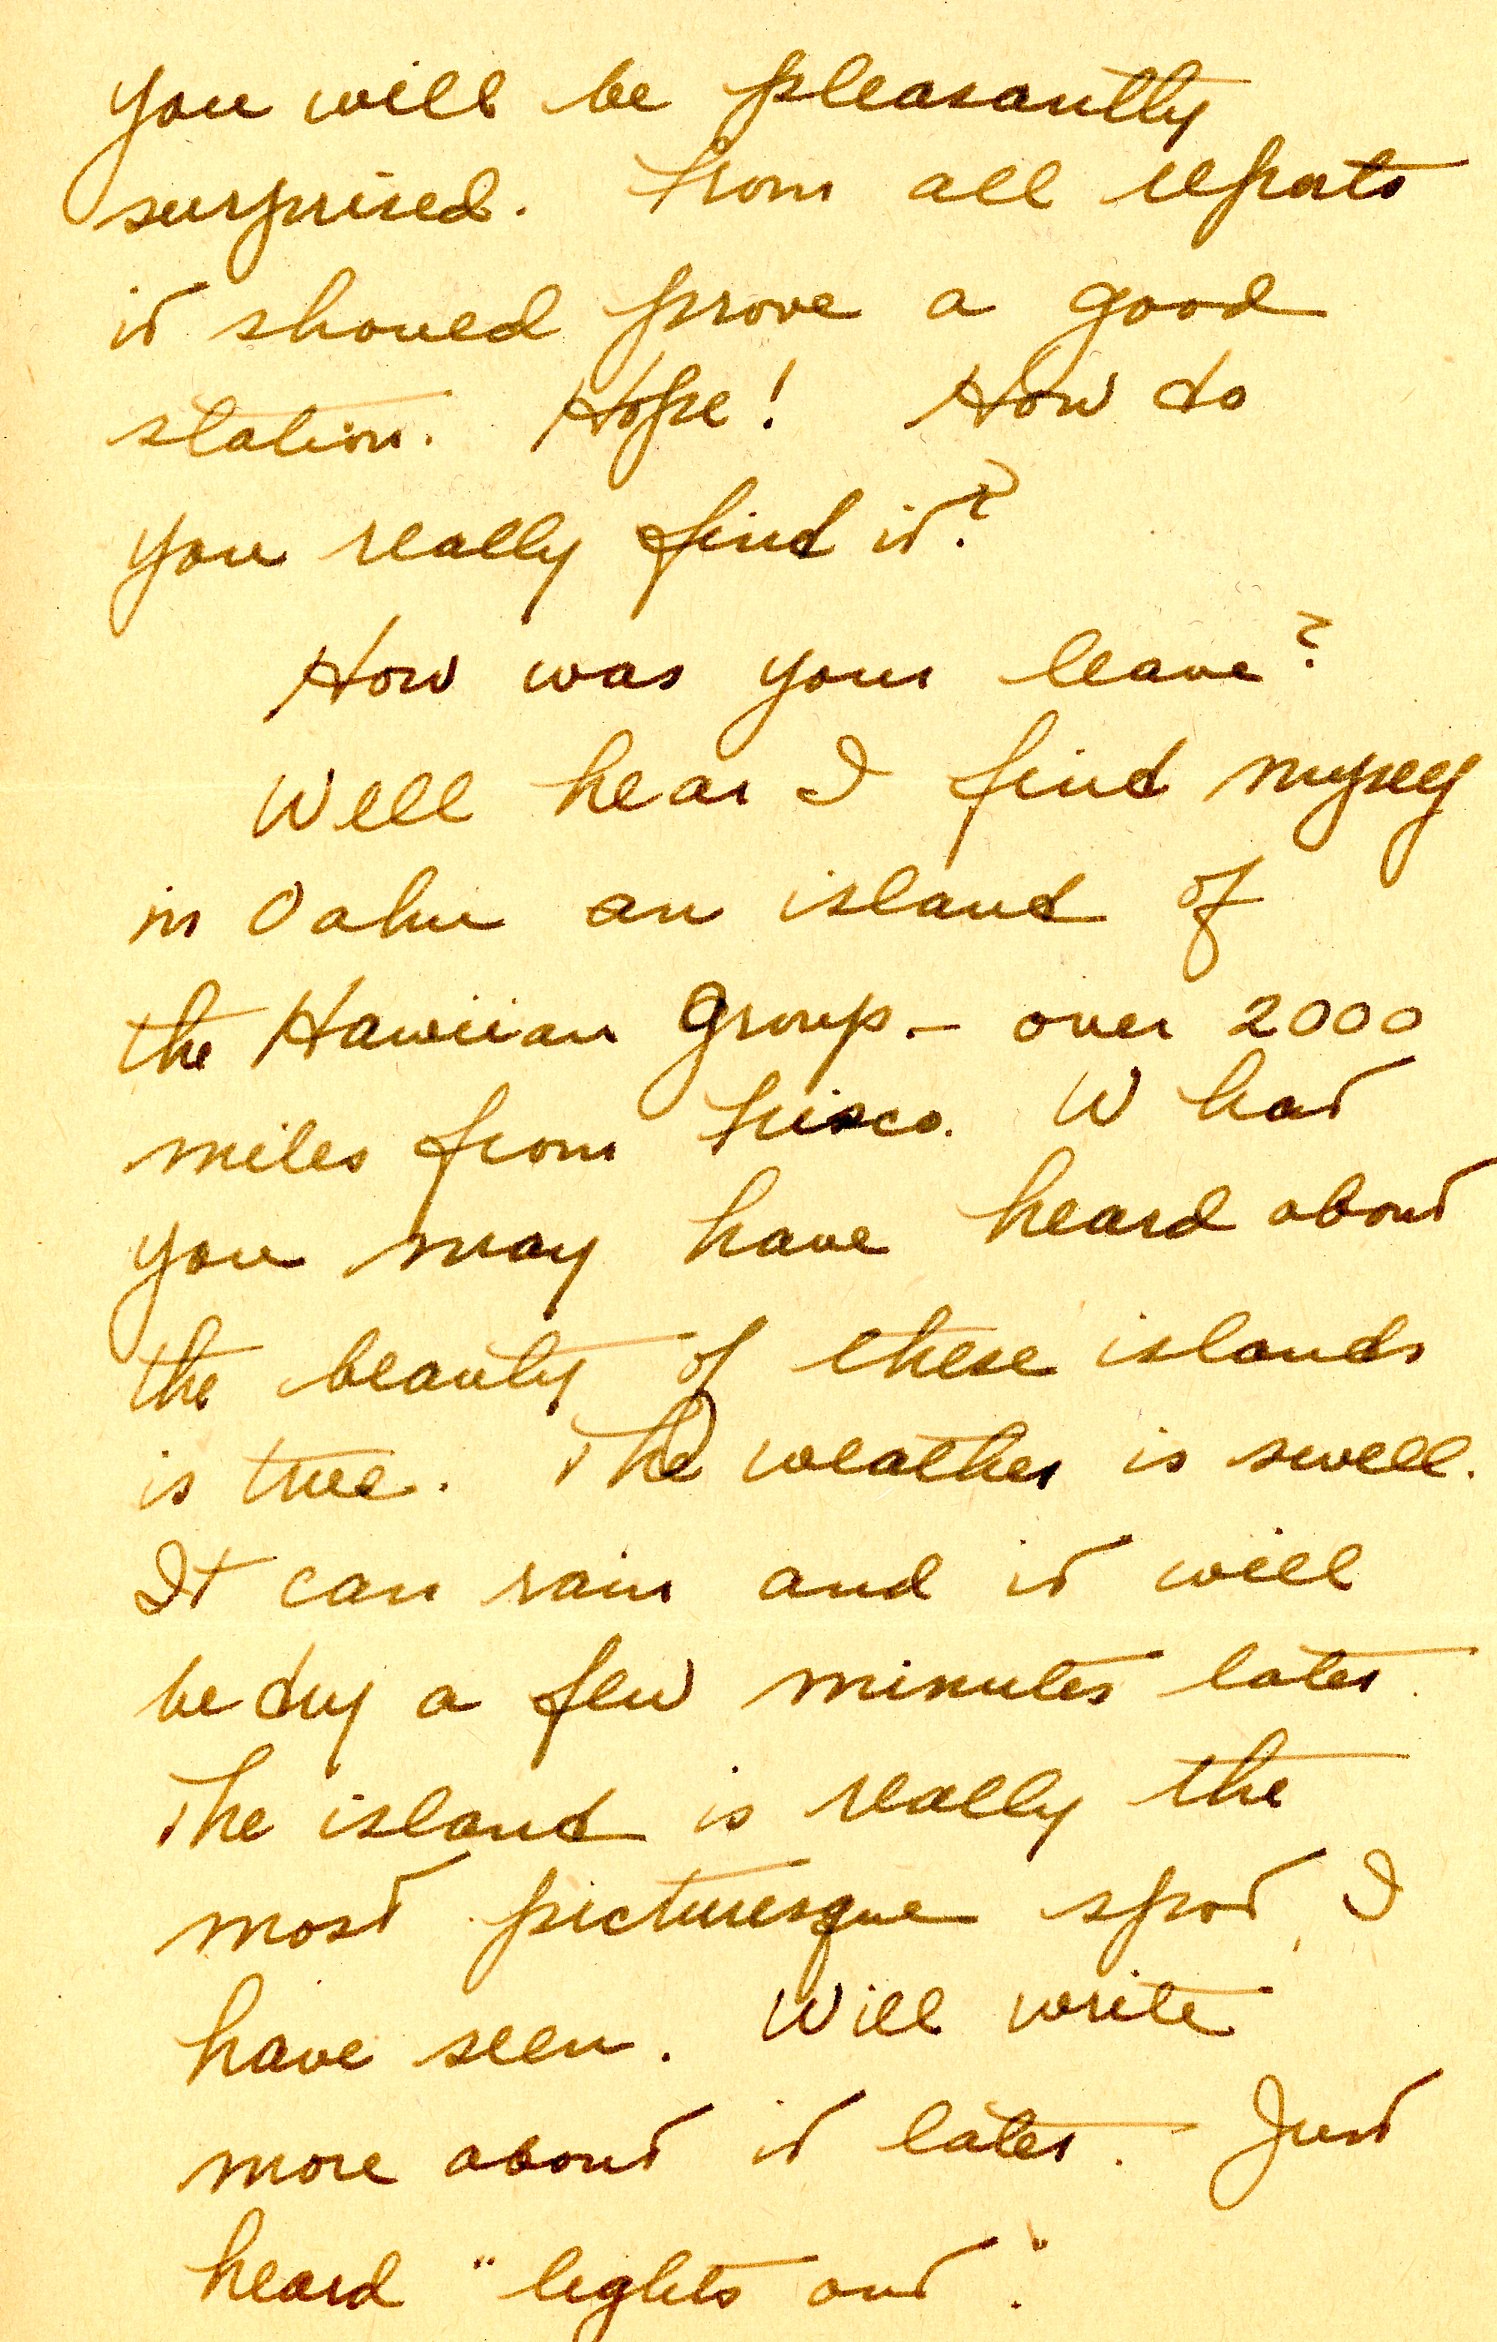 you will be pleasantly
surprised. From all reports
it should prove a good
station. Hope! How do
you really find it?
How was your leave?
Well hear I find myself
in Oahu an island of
the Hawiian Group - over 2000
miles from Frisco. What
you may have heard about
the beauty of these islands
is true. The weather is swell.
It can rain and it will
be dry a few minutes later.
The island is really the
most picturesque spot I
have seen. Will write
more about it later. Just
heard "lights out".